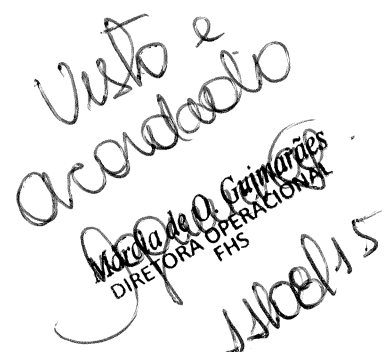 Visto e
acordado
Marcia de O. Guimarães
DIRETORA OPERACIONAL
FHS
11/08/15